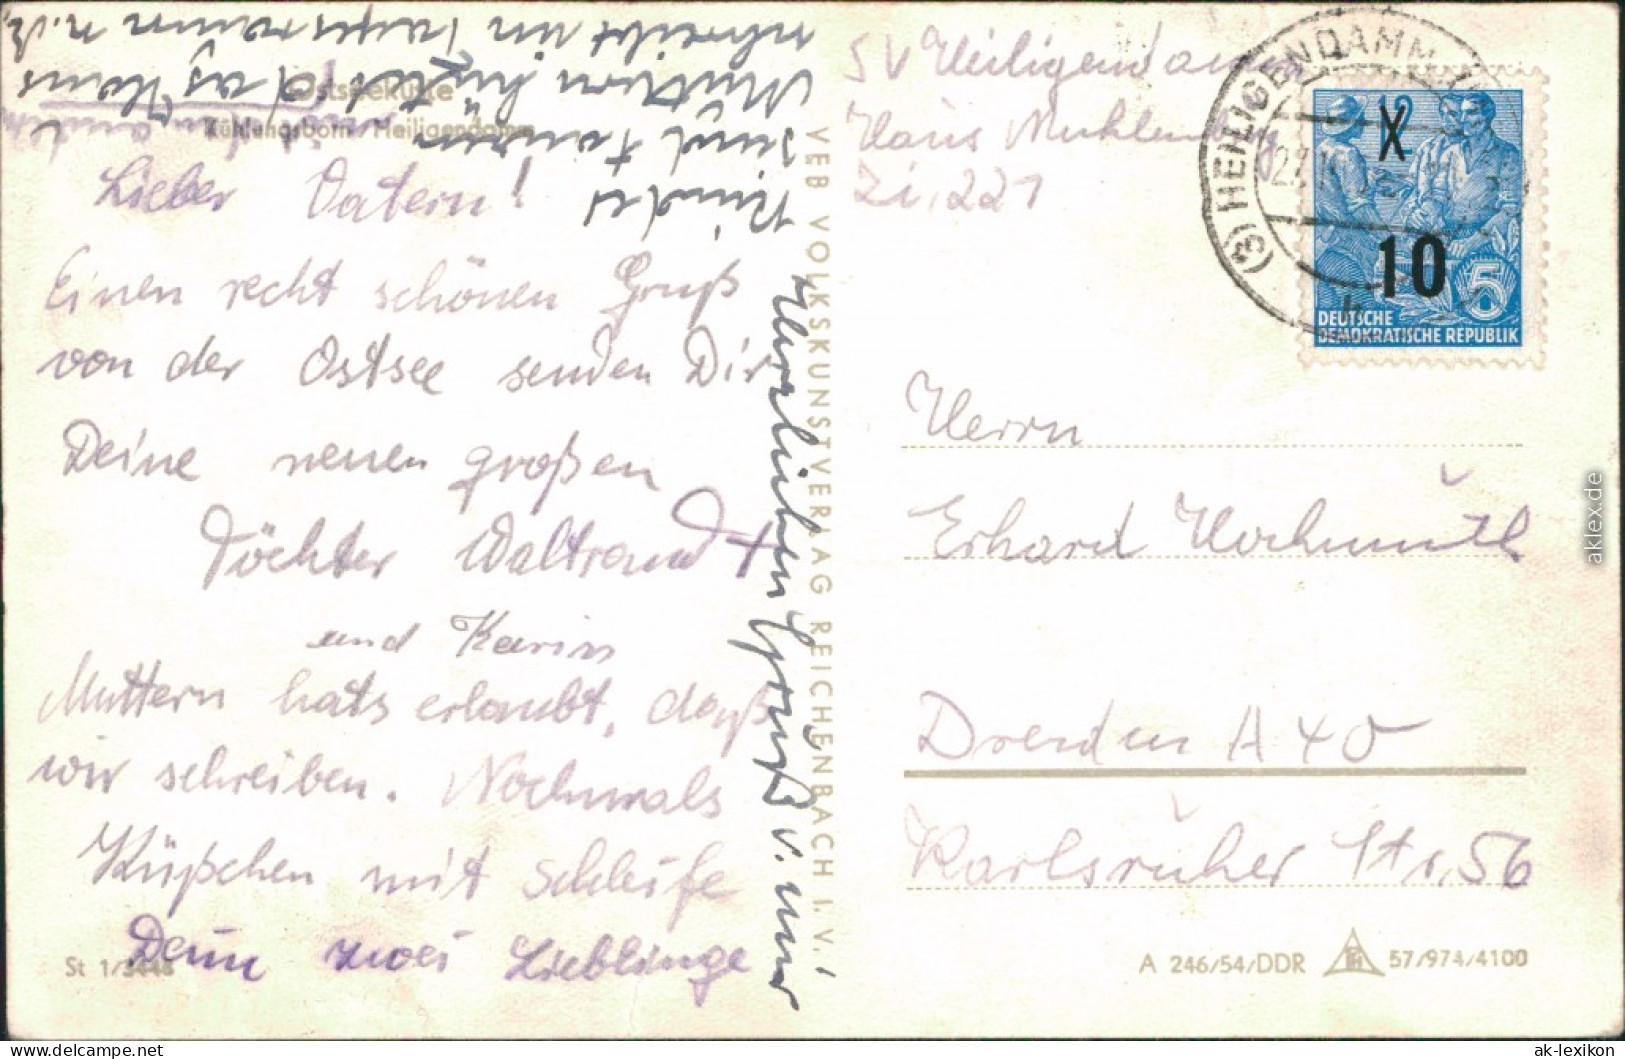 Ostseeküste
Kühlungsborn Heiligendamm
Lieber Vatern!
Einen recht schönen Gruß
von der Ostsee senden Dir
Deine neuen großen
Töchter Waltraudt
und Karin
Muttern hats erlaubt, daß
wir schreiben. Nochmals
Küßchen mit Schleife
Dein zwei Lieblinge
St 1/3448
Herzlichen Gruß v. mir
VEB VOLKSKUNSTVERLAG REICHENBACH I. V.
SV Heiligendamm
Haus Mecklenburg
Zi. 221
(3) HEILIGENDAMM
12
X
10
5
DEUTSCHE
DEMOKRATISCHE REPUBLIK
Herrn
Erhard Hochmuth
Dresden A 40
Karlsruher Str. 56
A 246/54/DDR 57/974/4100
aklex.de
www.delcampe.net
ak-lexikon